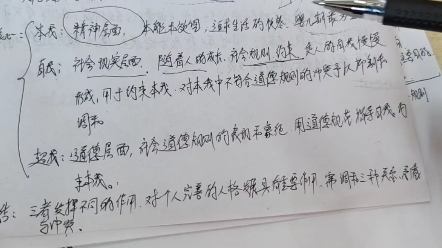 本我：精神层面，本能和欲望，追求生活的
自我：社会现实层面，随着人的成长，社会规则约束，是人的自我慢慢
形成，用于约束本我，对本我中不符合道德规则的冲突予以抑制和
调和。
超我：道德层面，社会道德规则的 用道德规范指导自我，约
束本我。
三者发挥不同的作用，对个人完善的人格都具有重要作用，需调和三种关系，不能
与冲突。
规则